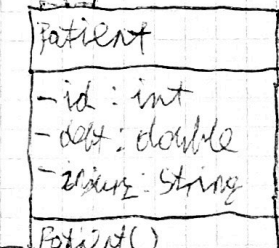 Patient
- id : int
- debt : double
- : String
Patient()